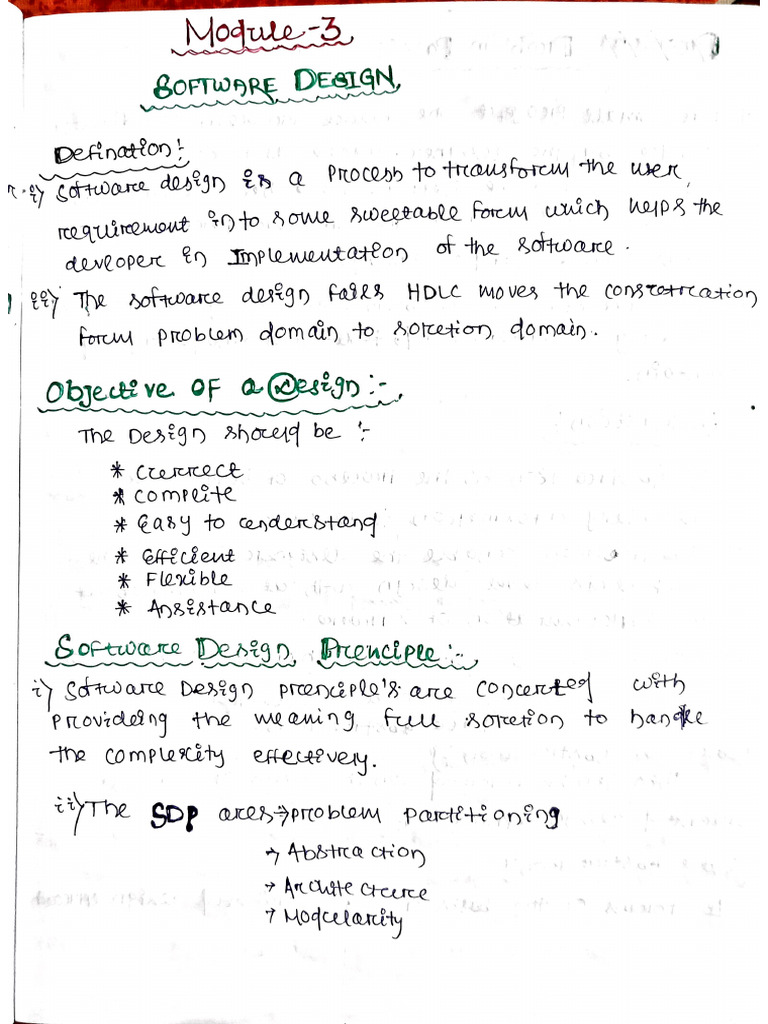 Module-3
SOFTWARE DESIGN
Defination:
i) Software design is a process to transform the user
requirement in to some sweetable form which helps the
developer in Implementation of the software.
ii) The software design fases HDLC moves the constretrcation
form problem domain to soretion domain.
Objective of a Design:-
The Design should be :-
* Currrect
* complite
* Easy to understand
* Efficient
* Flexible
* Ansistance
Software Design Prenciple:-
i) Software Design prenciple's are concerted with
Provideing the meaning full soretion to handle
the complexity effectively.
ii) The SDP ares→problem partitioning
→ Abstraction
→ Archite cture
→ Modularity